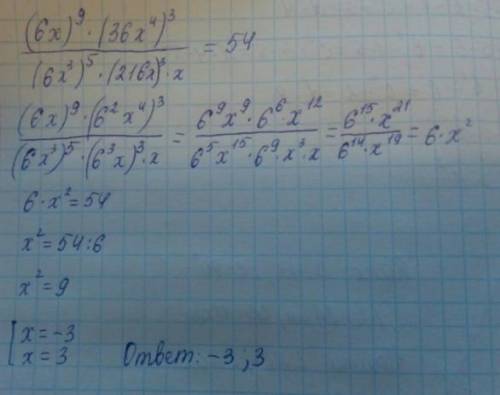 (6x)⁹ · (36x⁴)³ / (6x³)⁵ · (216x)³ · x = 54
(6x)⁹ · (6²x⁴)³ / (6x³)⁵ · (6³x)³ · x = 6⁹x⁹ · 6⁶ · x¹² / 6⁵x¹⁵ · 6⁹ · x³ · x = 6¹⁵ · x²¹ / 6¹⁴ · x¹⁹ = 6 · x²
6 · x² = 54
x² = 54 : 6
x² = 9
[ x = -3
x = 3 Ответ: -3 ; 3